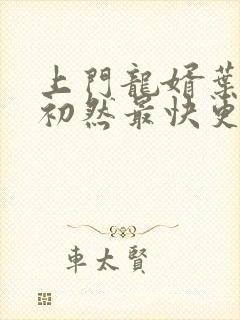 上門龍婿葉
初然最快更
車太賢